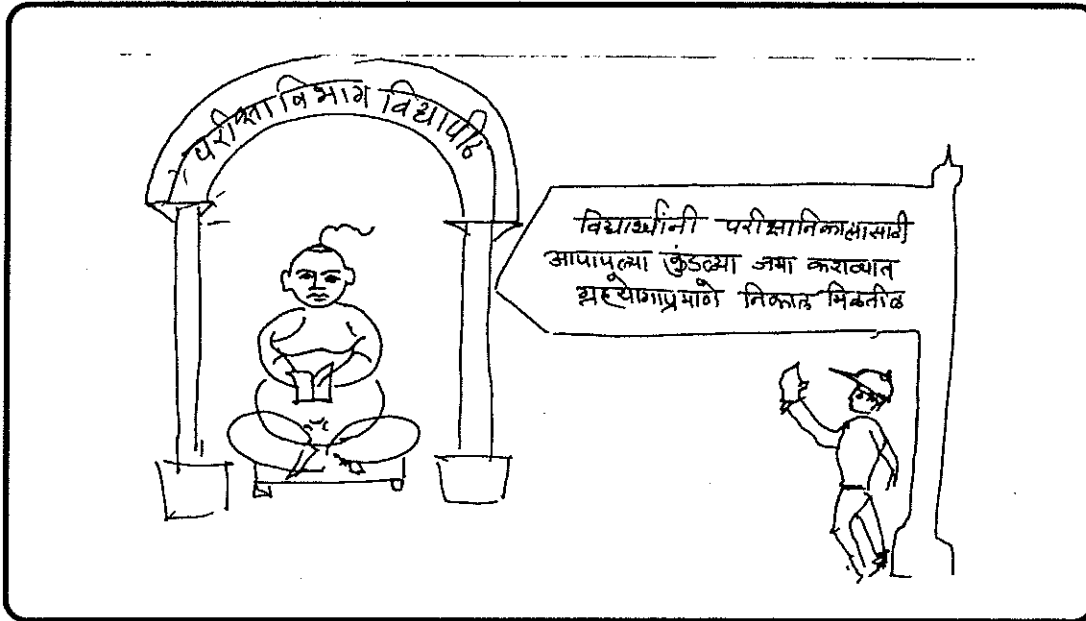 परीक्षा विभाग विद्यापीठ
विद्यार्थ्यांनी परीक्षा निकालासाठी
आपापल्या कुंडल्या जमा कराव्यात
ग्रहयोगाप्रमाणे निकाल मिळतील